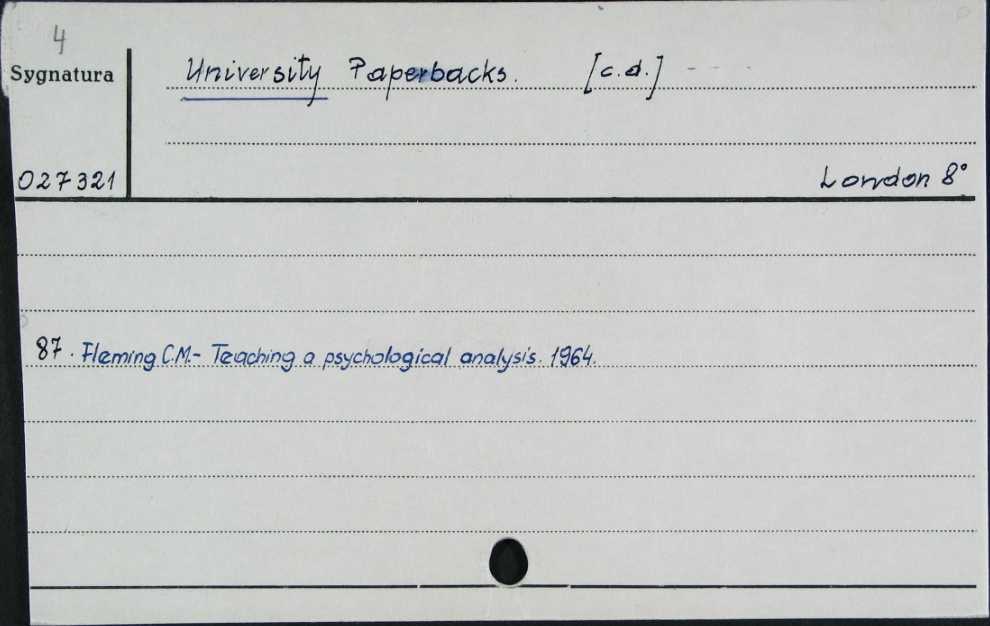 4
Sygnatura
University Paperbacks. [c.d.] - - - -
027321
London 8°
87. Fleming C.M.- Teaching a psychological analysis. 1964.